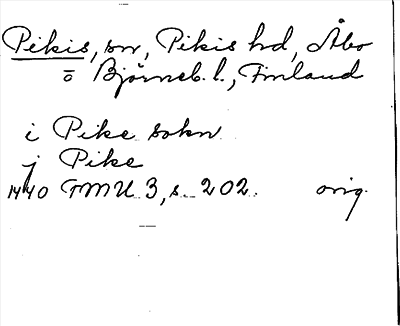 Pikis, sn, Pikis hd, Åbo
o Björneb. l., Finland
i Pike sokn
j Pike
1440 FMU 3, s. 202. orig.